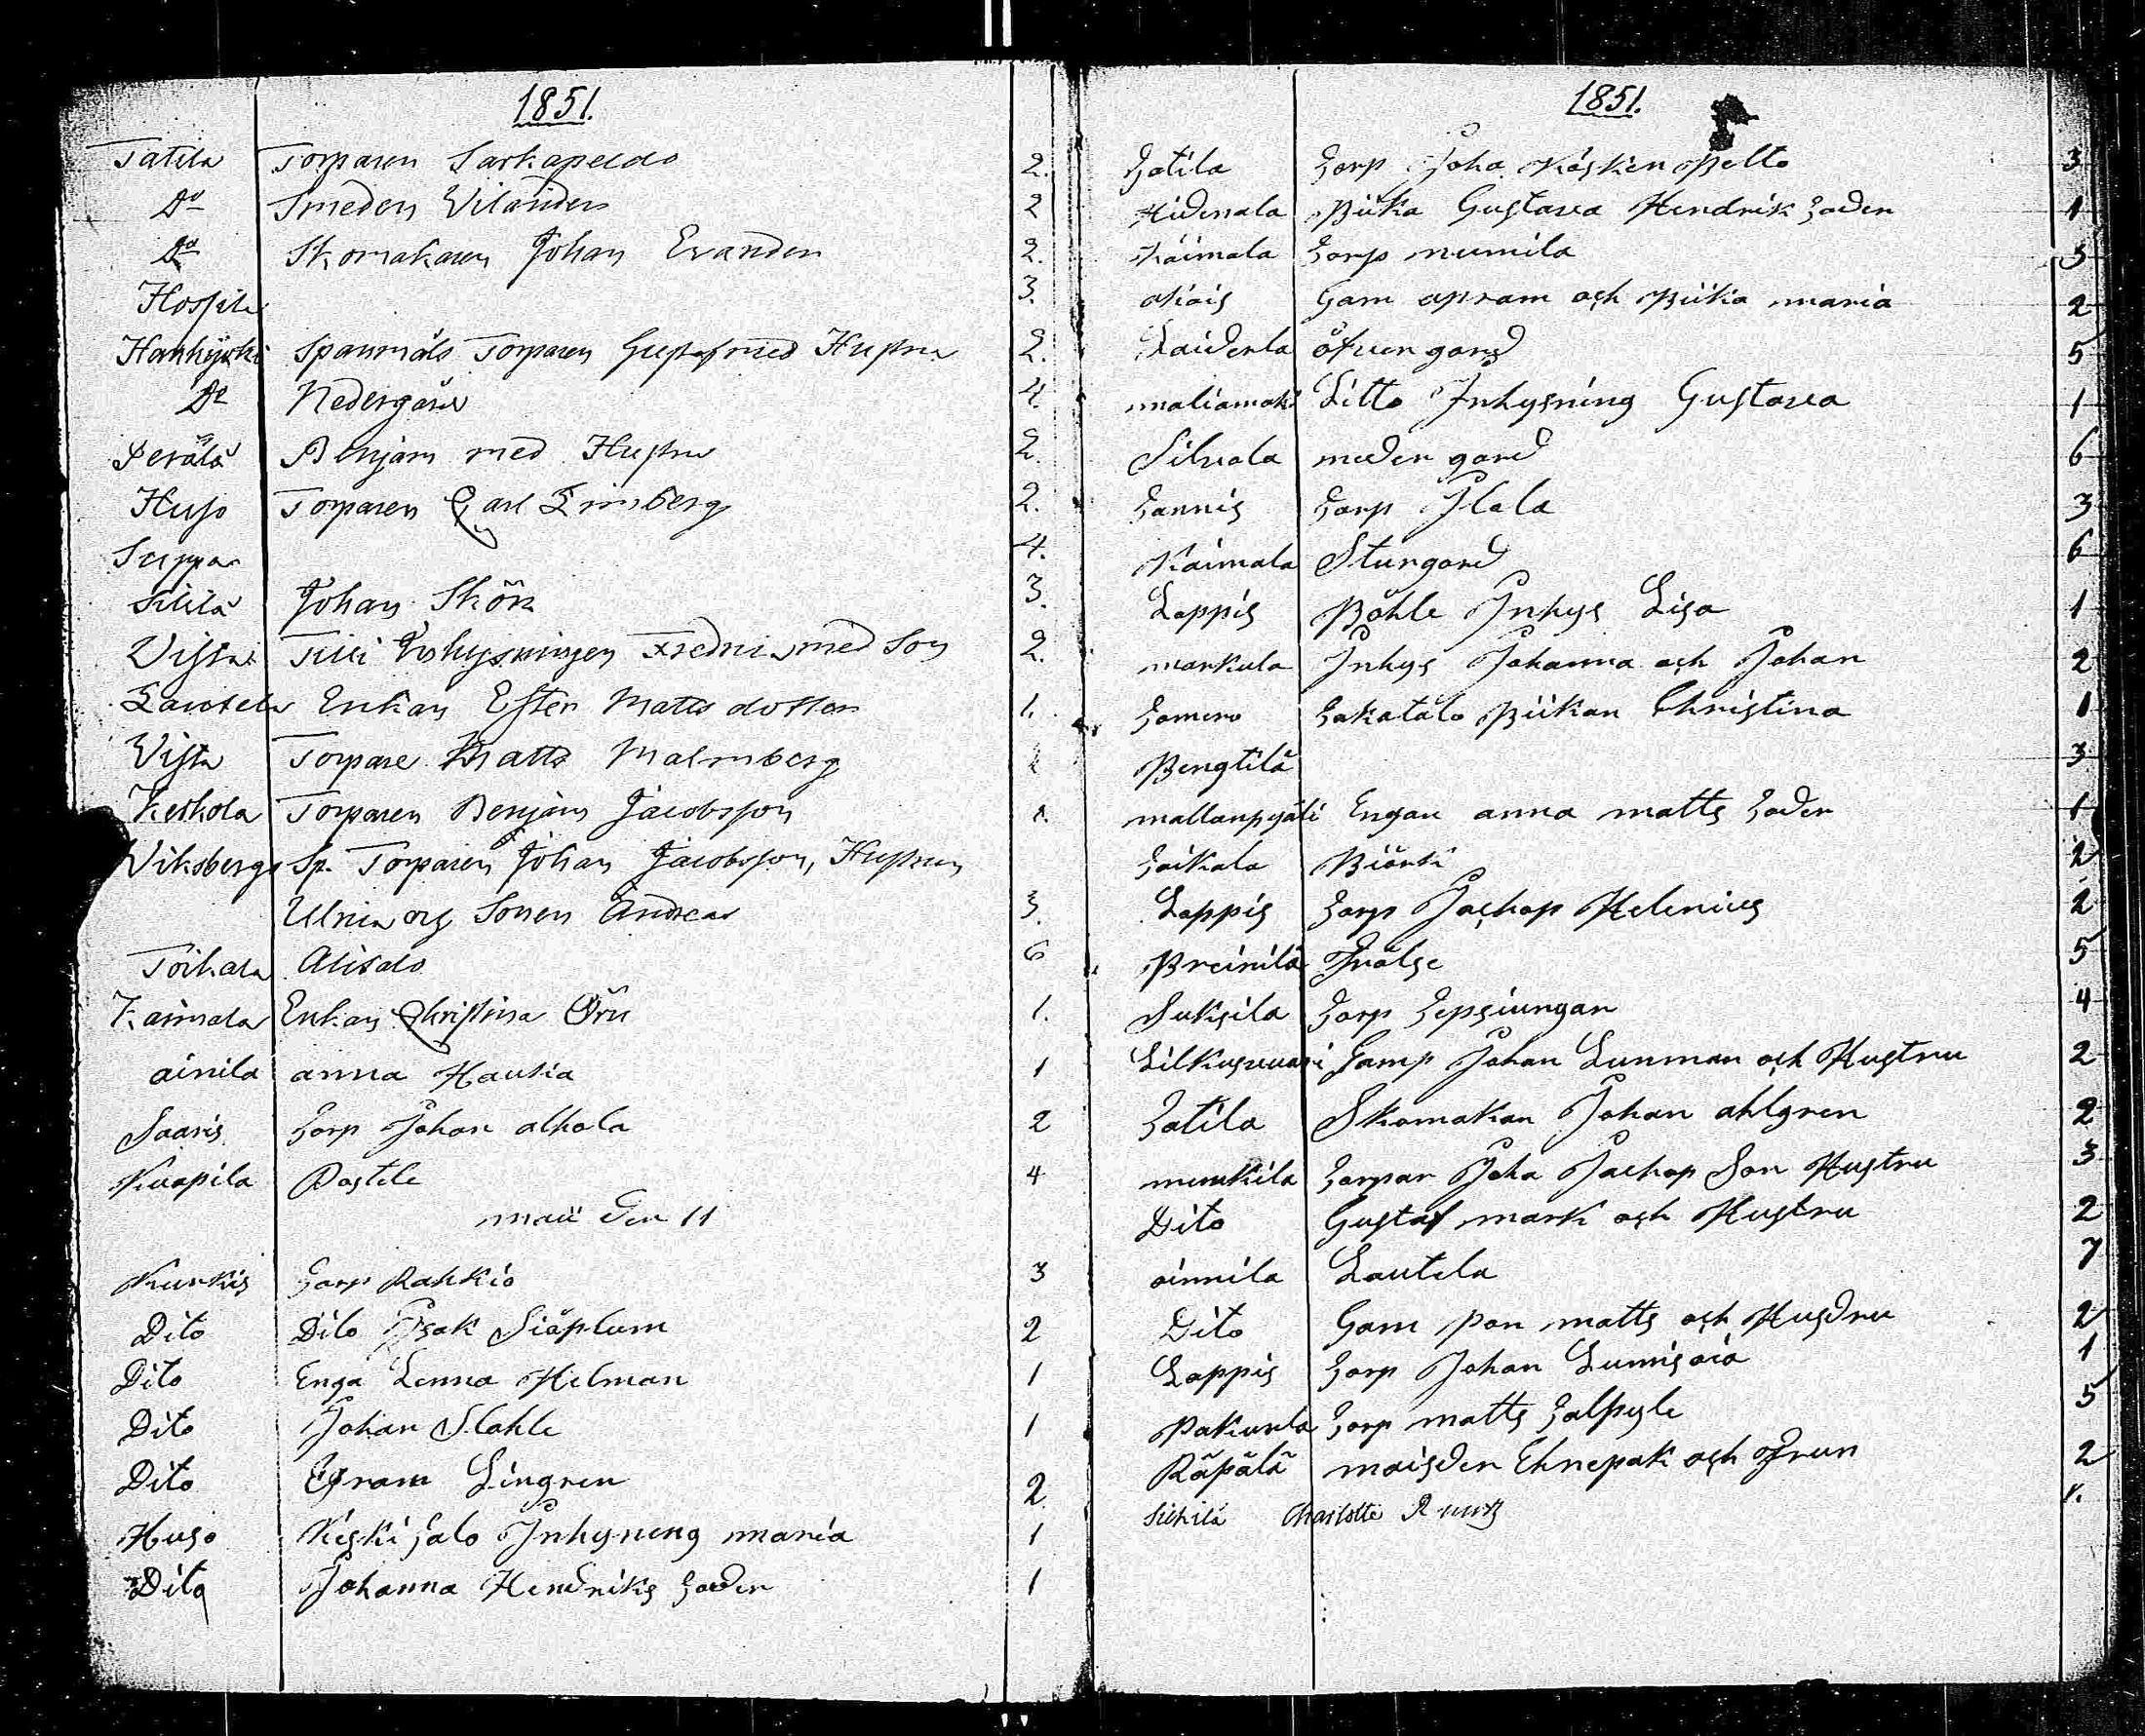 1851.
Tatila Torparen Sarkapeldo 2.
Do Smeden Vilander 2
Do Skomakaren Johan Evander 2.
Hossila 3.
Hanhijoki Spannmåls Torparen Gustaf med Hustru 2.
Do Nedergård 4.
Perälä Benjam med Hustru 2.
Huso Torparen Carl Limberg 2.
Seppa 4.
Silila Johan Skön 3.
Vista Inhysningen med Son 2.
Lautela Enkan Ester Matts dotter 1.
Vista Torpare Matts Malmberg
Keskola Torparen Benjam Jacobsson 1.
Viksbergs Sp. Torparen Johan Jacobsson, Hustrun
Ulrica og Sonen Andreas 3.
Toikala Alisalo 6
Kaimala Enkan Christina Örn 1.
ainila anna Haukia 1
Saaris Torp Johan alhola 2
Kuapila Rostele 4
maii den 11
Kurkis Torp Rahkio 3
Dito Dito Isak Siöplum 2
Dito Enga Lenna Helman 1
Dito Johan Stahle 1
Dito Efram Lingren 2
Huso Keskisalo Inhyneng maria 1
Dito Johanna Hendriks Toder 1
1851.
Tatila Torp Joha Kösken Pelto 3
Hidenala Piika Gustava Hendrik Toder 1
Kaimala Torp numila 3
Kais Gam apram och Piika maria 2
Laiderla öfver gard 5
maliamaki Litto Inhysning Gustava 1
Silvala neder gard 6
Tannis Torp Ilala 3
Kaimala Sturgard 6
Lappis Böhle Inhys Lisa 1
markula Inhys Johanna och Johan 2
Tomero Takatalo Piikan Christina 1
Pengtilä 3
mallanpyäli Engan anna matts Toder 1
Toikala Biörki 2
Lappis Torp Jachop Helenius 2
Preinilä Frälse 5
Suksila Torp Tepsiungar 4
Lilkusvuari Tamp Johan Lunman och Hustru 2
Tatila Skomakan Johan ahlgren 2
munkila Torpar Joha Jachop Son Hustru 3
Dito Gustaf mark och Hustru 2
ainnila Lautela 7
Dito Gam pon matts och Husdru 2
Lappis Torp Johan Lumisoia 1
Pakurla Torp matts Talpyle 5
Räpälä maisder Ehnepak och Frun 2
Sichilä Charlotte 1.